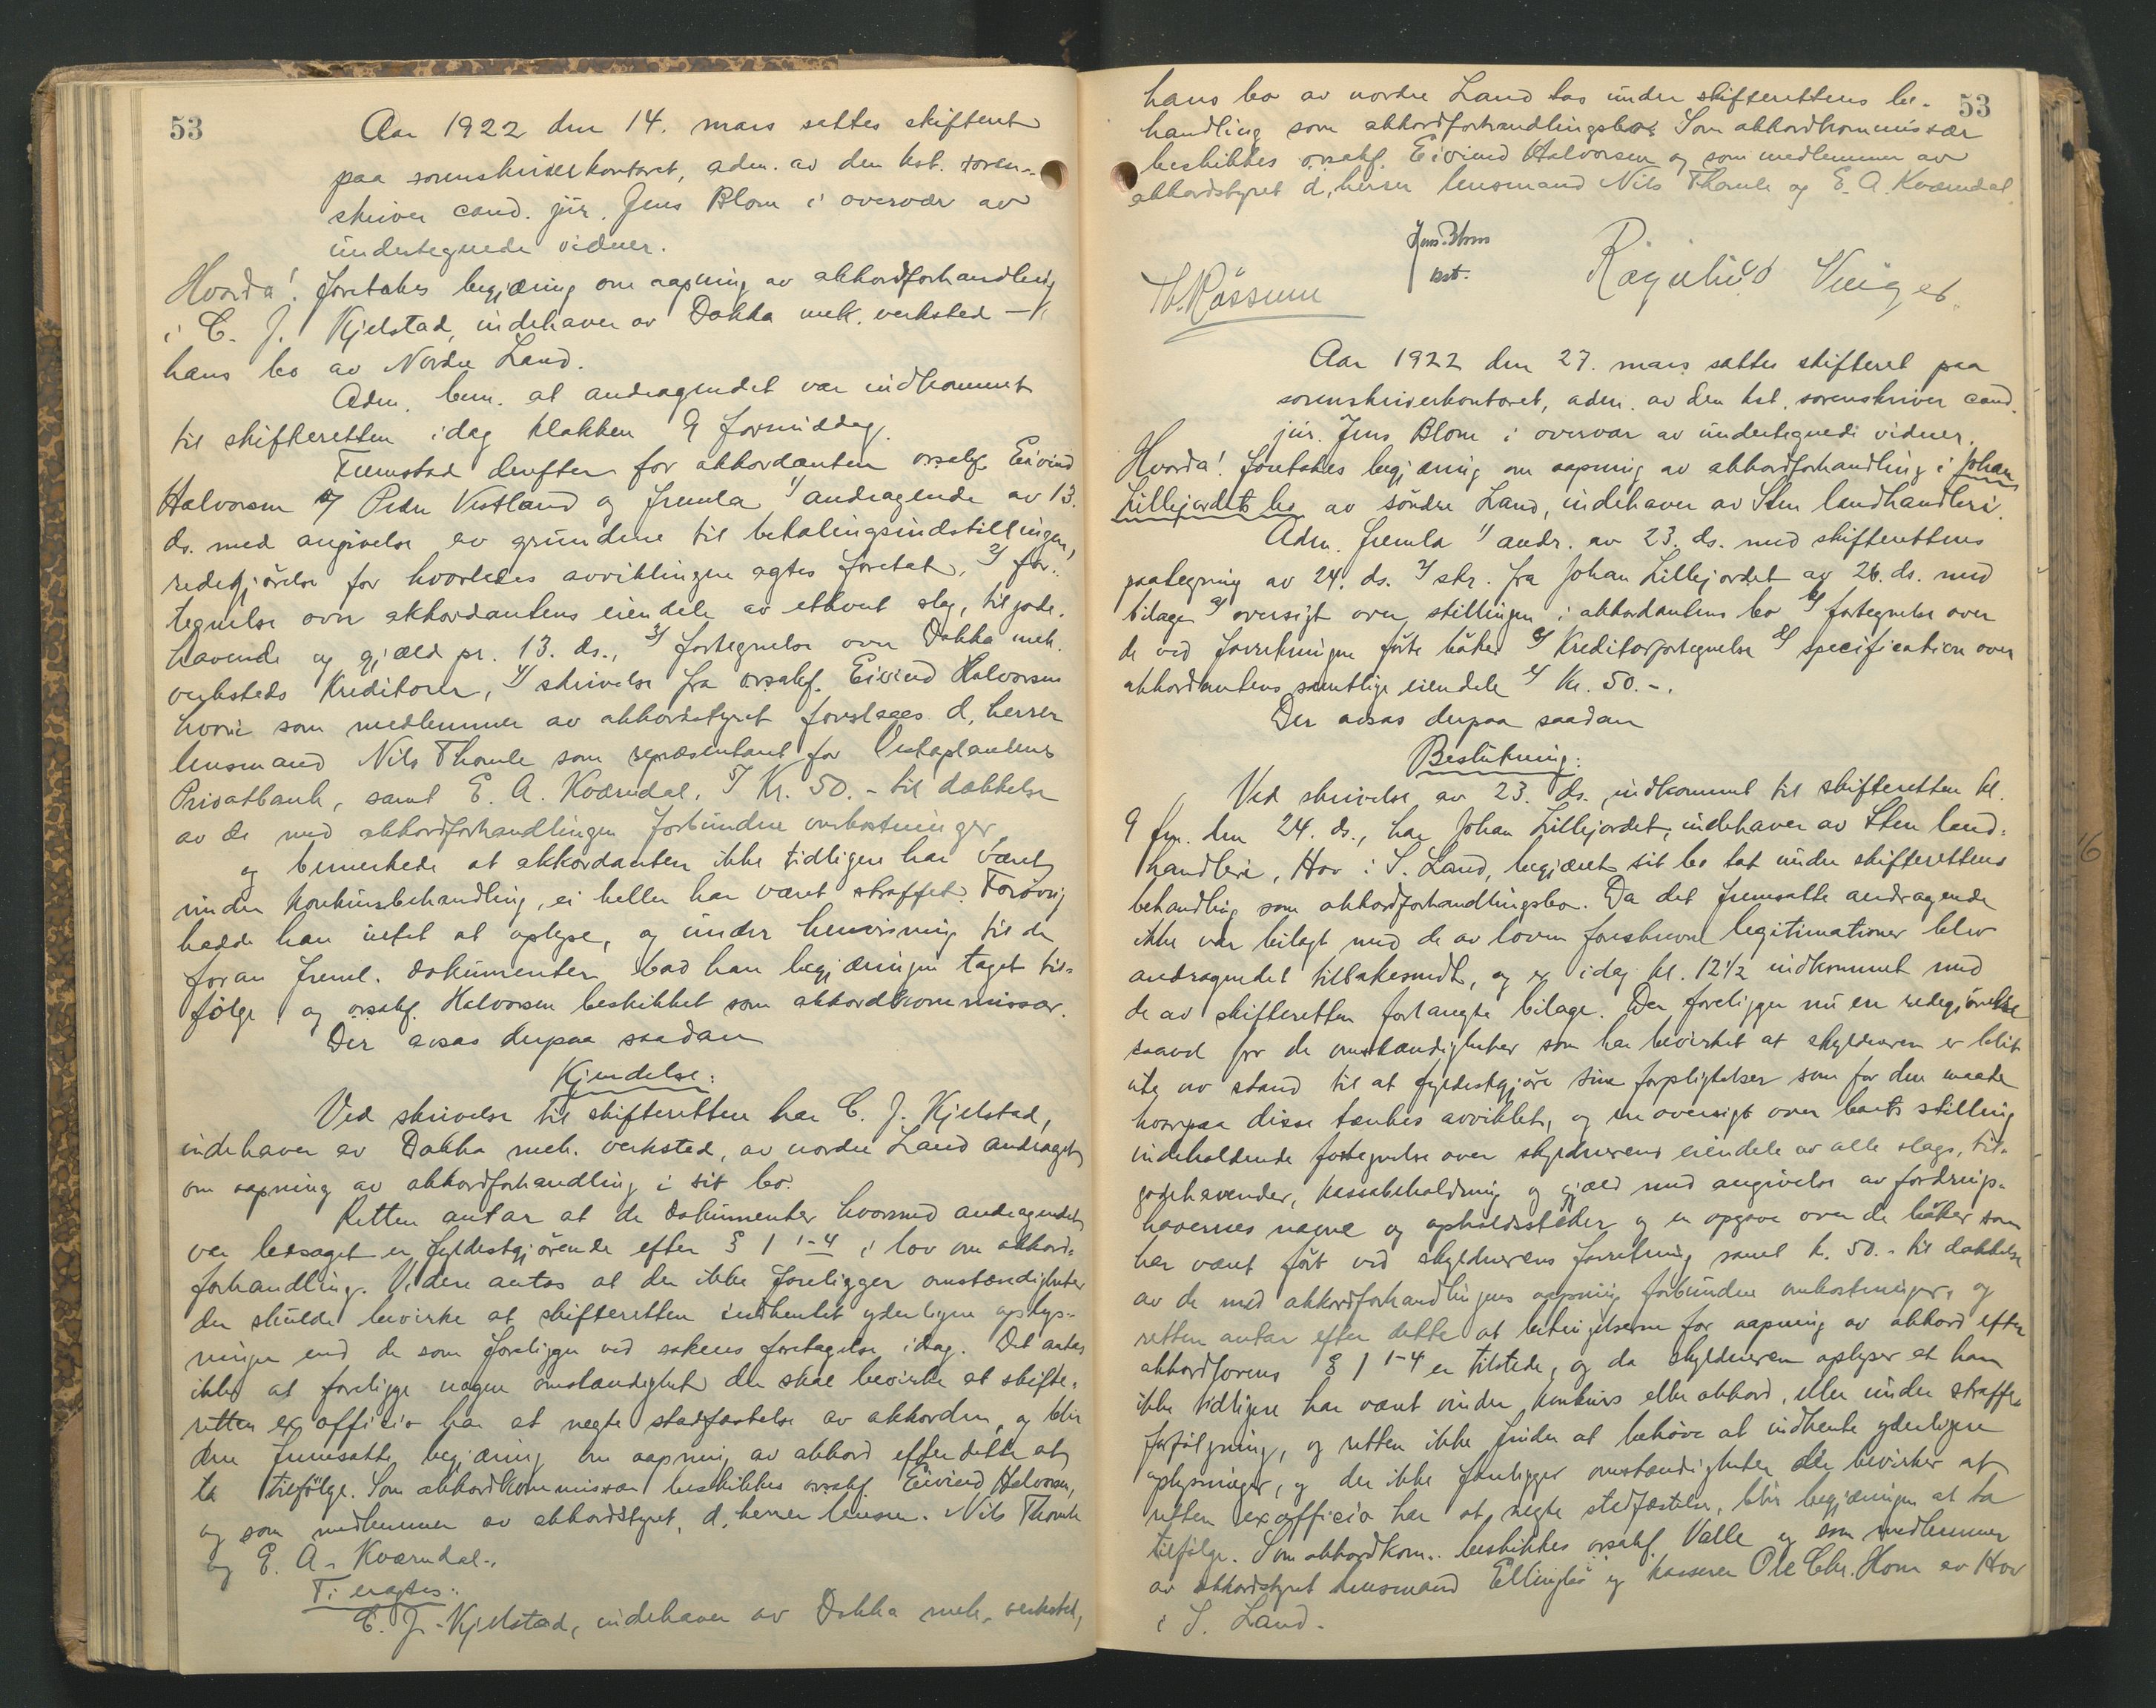 53
Aar 1922 den 14. mars sattes skifteret
paa sorenskriverkontoret, adm. av den kst. soren-
skriver cand. jur. Jens Blom i overvær av
undertegnede vidner.
Hvorda! foretakes begjæring om aapning av akkordforhandling
i C. J. Kjelstad, indehaver av Dokka mek. verksted –
hans bo av Nordre Land.
Adm. bem. at andragendet var indkommet
til skifteretten idag klokken 9 formiddag.
Fremstod derefter for akkordanten orsakf. Eivind
Halvorsen v/ Peder Vestland og fremla 1/ andragende av 13.
ds. med angivelse av grundene til betalingsindstillingen,
redegjörelse for hvorledes avviklingen agtes foretat, 2/ for-
tegnelse over akkordantens eiendele av ethvert slag, tilgode-
havende og gjæld pr. 13. ds., 3/ fortegnelse over Dokka mek.
verksteds kreditorer, 4/ skrivelse fra orsakf. Eivind Halvorsen
hvori som medlemmer av akkordstyret foreslaaes d, herrer
lensmand Nils Thomle som repræsentant for Vestoplandenes
Privatbank, samt E. A. Kværndal, 5/ Kr. 50.- til dækkelse
av de med akkordforhandlingen forbundne omkostninger
og bemerkede at akkordanten ikke tidligere har været
under konkursbehandling, ei heller har været straffet. Forövrig
hadde han intet at oplyse, og under henvisning til de
foran freml. dokumenter bad han begjæringen taget til-
fölge, og orsakf. Halvorsen beskikket som akkordkommissær.
Der avsas derpaa saadan
Kjendelse:
Ved skrivelse til skifteretten har C. J. Kjelstad,
indehaver av Dokka mek. verksted, av nordre Land andraget
om aapning av akkordforhandling i sit bo.
Retten antar at de dokumenter hvormed andragendet
var ledsaget er fyldestgjörende efter § 1 1-4 i lov om akkord-
forhandling. Videre antas at der ikke foreligger omstændigheter
der skulde bevirke at skifteretten indhentet yderligere oplys-
ninger end de som foreligger ved sakens foretagelse idag. Det antas
ikke at foreligge nogen omstændighet der skal bevirke at skifte-
retten ex officio har at negte stadfæstelse av akkorden, og blir
den fremsatte begjæring om aapning av akkord efter dette at
ta tilfölge. Som akkordkommissær beskikkes orsakf. Eivind Halvorsen,
og som medlemmer av akkordstyret, d. herrer lensm. Nils Thomle
og E. A. Kværndal.
Ti eragtes:
C. J. Kjelstad, indehaver av Dokka mek. verksted,
53
hans bo av nordre Land tas under skifterettens be-
handling som akkordforhandlingsbo. Som akkordkommissær
beskikkes orsakf. Eivind Halvorsen og som medlemmer av
akkordstyret d, herrer lensmand Nils Thomle og E. A. Kværndal.
Jens Blom
kst.
Aar 1922 den 27. mars sattes skifteret paa
sorenskriverkontoret, adm. av den kst. sorenskriver cand.
jur. Jens Blom i overvær av undertegnede vidner.
Hvorda! foretakes begjæring om aapning av akkordforhandling i Johan
Lillejordets bo av söndre Land, indehaver av Sten landhandleri.
Adm. fremla 1/ andr. av 23. ds. med skifterettens
paategning av 24. ds. 2/ skr. fra Johan Lillejordet av 26. ds. med
bilage a/ oversigt over stillingen i akkordantens bo b/ fortegnelse over
de ved forretningen förte böker c/ Kreditorfortegnelse d/ specification over
akkordantens samtlige eiendele e/ Kr. 50.-.
Der avsas derpaa saadan
Beslutning:
Ved skrivelse av 23. ds. indkommet til skifteretten kl.
9 fm. den 24. ds., har Johan Lillejordet, indehaver av Sten land-
handleri, Hov i S. Land, begjæret sit bo tat under skifterettens
behandling som akkordforhandlingsbo. Da det fremsatte andragende
ikke var bilagt med de av loven foreskrevne legitimationer blev
andragendet tilbakesendt, og er idag kl. 12½ indkommet med
de av skifteretten forlangte bilage. Der foreligger nu en redegjörelse
saavel for de omstændigheter som har bevirket at skyldneren er blit
ute av stand til at fyldestgjöre sine forpligtelser som for den maate
hvorpaa disse tænkes avviklet, og en oversigt over boets stilling
indeholdende fortegnelse over skyldnerens eiendele av alle slags, til-
godehavender, kassabeholdning og gjæld med angivelse av fordrings-
havernes navne og opholdssteder og en opgave over de böker som
har været fört ved skyldnerens forretning samt kr. 50.- til dækkelse
av de med akkordforhandlingens aapning forbundne omkostninger, og
retten antar efter dette at betingelserne for aapning av akkord efter
akkordlovens § 1 1-4 er tilstede, og da skyldneren oplyser at han
ikke tidligere har været under konkurs eller akkord, eller under straffe-
forfölgning, og retten ikke finder at behöve at indhente yderligere
oplysninger, og der ikke foreligger omstændigheter der bevirker at
retten ex officio har at negte stadfæstelse, blir begjæringen at ta
tilfölge. Som akkordkom. beskikkes orsakf. Valle og som medlemmer
av akkordstyret lensmand Ellingbö og kasserer Ole Chr. Horn av Hov
i S. Land.
16